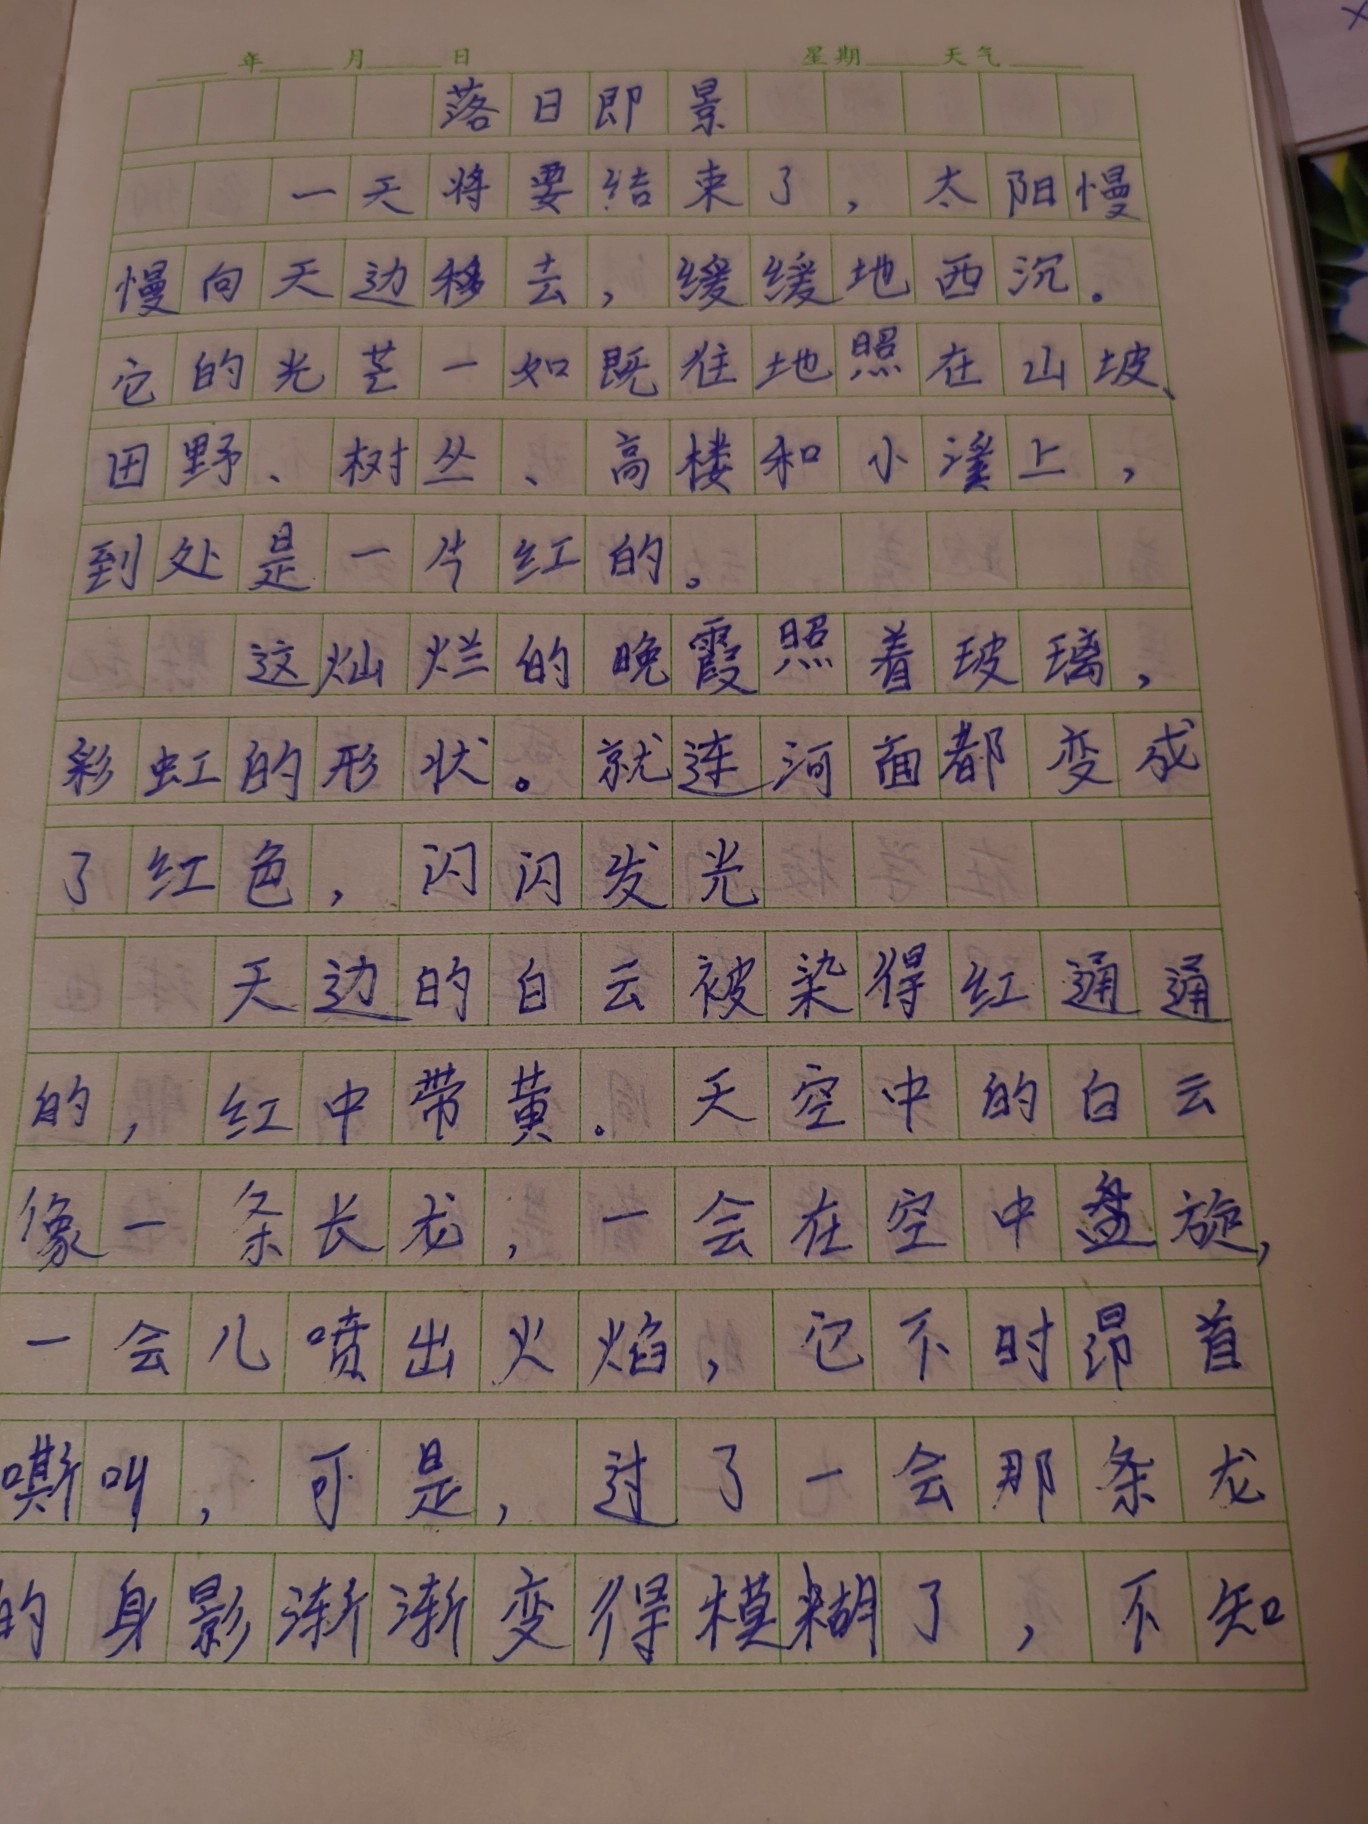 年 月 日 星期 天气
落日即景
一天将要结束了，太阳慢
慢向天边移去，缓缓地西沉。
它的光芒一如既往地照在山坡、
田野、树丛、高楼和小溪上，
到处是一片红的。
这灿烂的晚霞照着玻璃，
彩虹的形状。就连河面都变成
了红色，闪闪发光
天边的白云被染得红通通
的，红中带黄。天空中的白云
像一条长龙，一会在空中盘旋，
一会儿喷出火焰，它不时昂首
嘶叫，可是，过了一会那条龙
的身影渐渐变得模糊了，不知